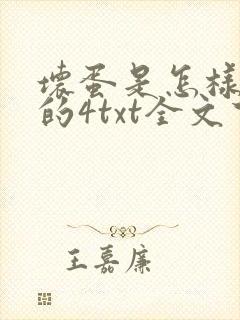 壞蛋是怎樣
的4txt全文
王嘉廉